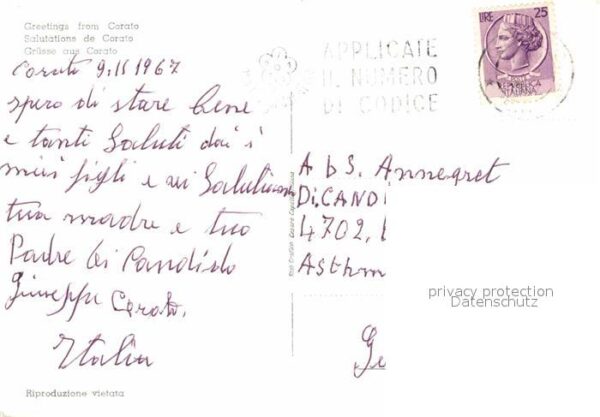 Greetings from Corato
Salutations de Corato
Grüsse aus Corato
Corato 9.11 1967
spero di stare bene
e tanti Saluti dai i
miei figli e
tua madre e tuo
Padre
Giuseppe Corato.
Italia
Riproduzione vietata
APPLICATE
IL NUMERO
DI CODICE
LIRE 25
REPVBBLICA
ITALIANA
AbS. Annegret
Di.CANDI
4702,
Asthm
Ge
privacy protection
Datenschutz